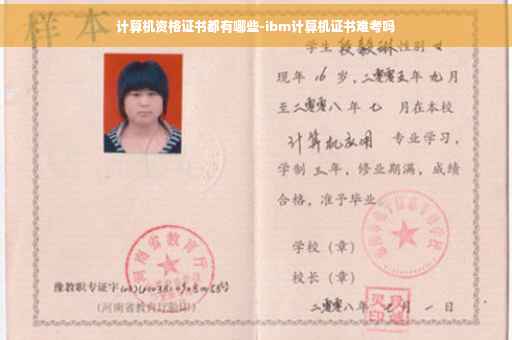 计算机资格证书都有哪些-ibm计算机证书难考吗
样本
学生段毅琳性别女
现年16岁,二零零五年九月
至二零零八年七 月在本校
计算机应用 专业学习,
学制三年,修业期满,成绩
合格,准予毕业
学校(章)
校长(章)
二零零八年七月一日
河南省教育厅
豫教职专证字
(河南省教育厅验印)